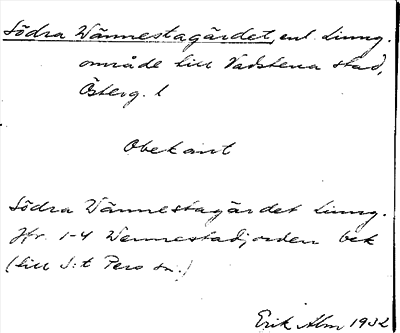 Södra Vännestagärdet, enl. Ljung.
område till Vadstena stad,
Österg. l
Obekant
Södra Vännestagärdet Ljung.
Jfr. 1-4 Wennestadjorden bek
(till S:t Pers sn.)
Erik Alm 1932